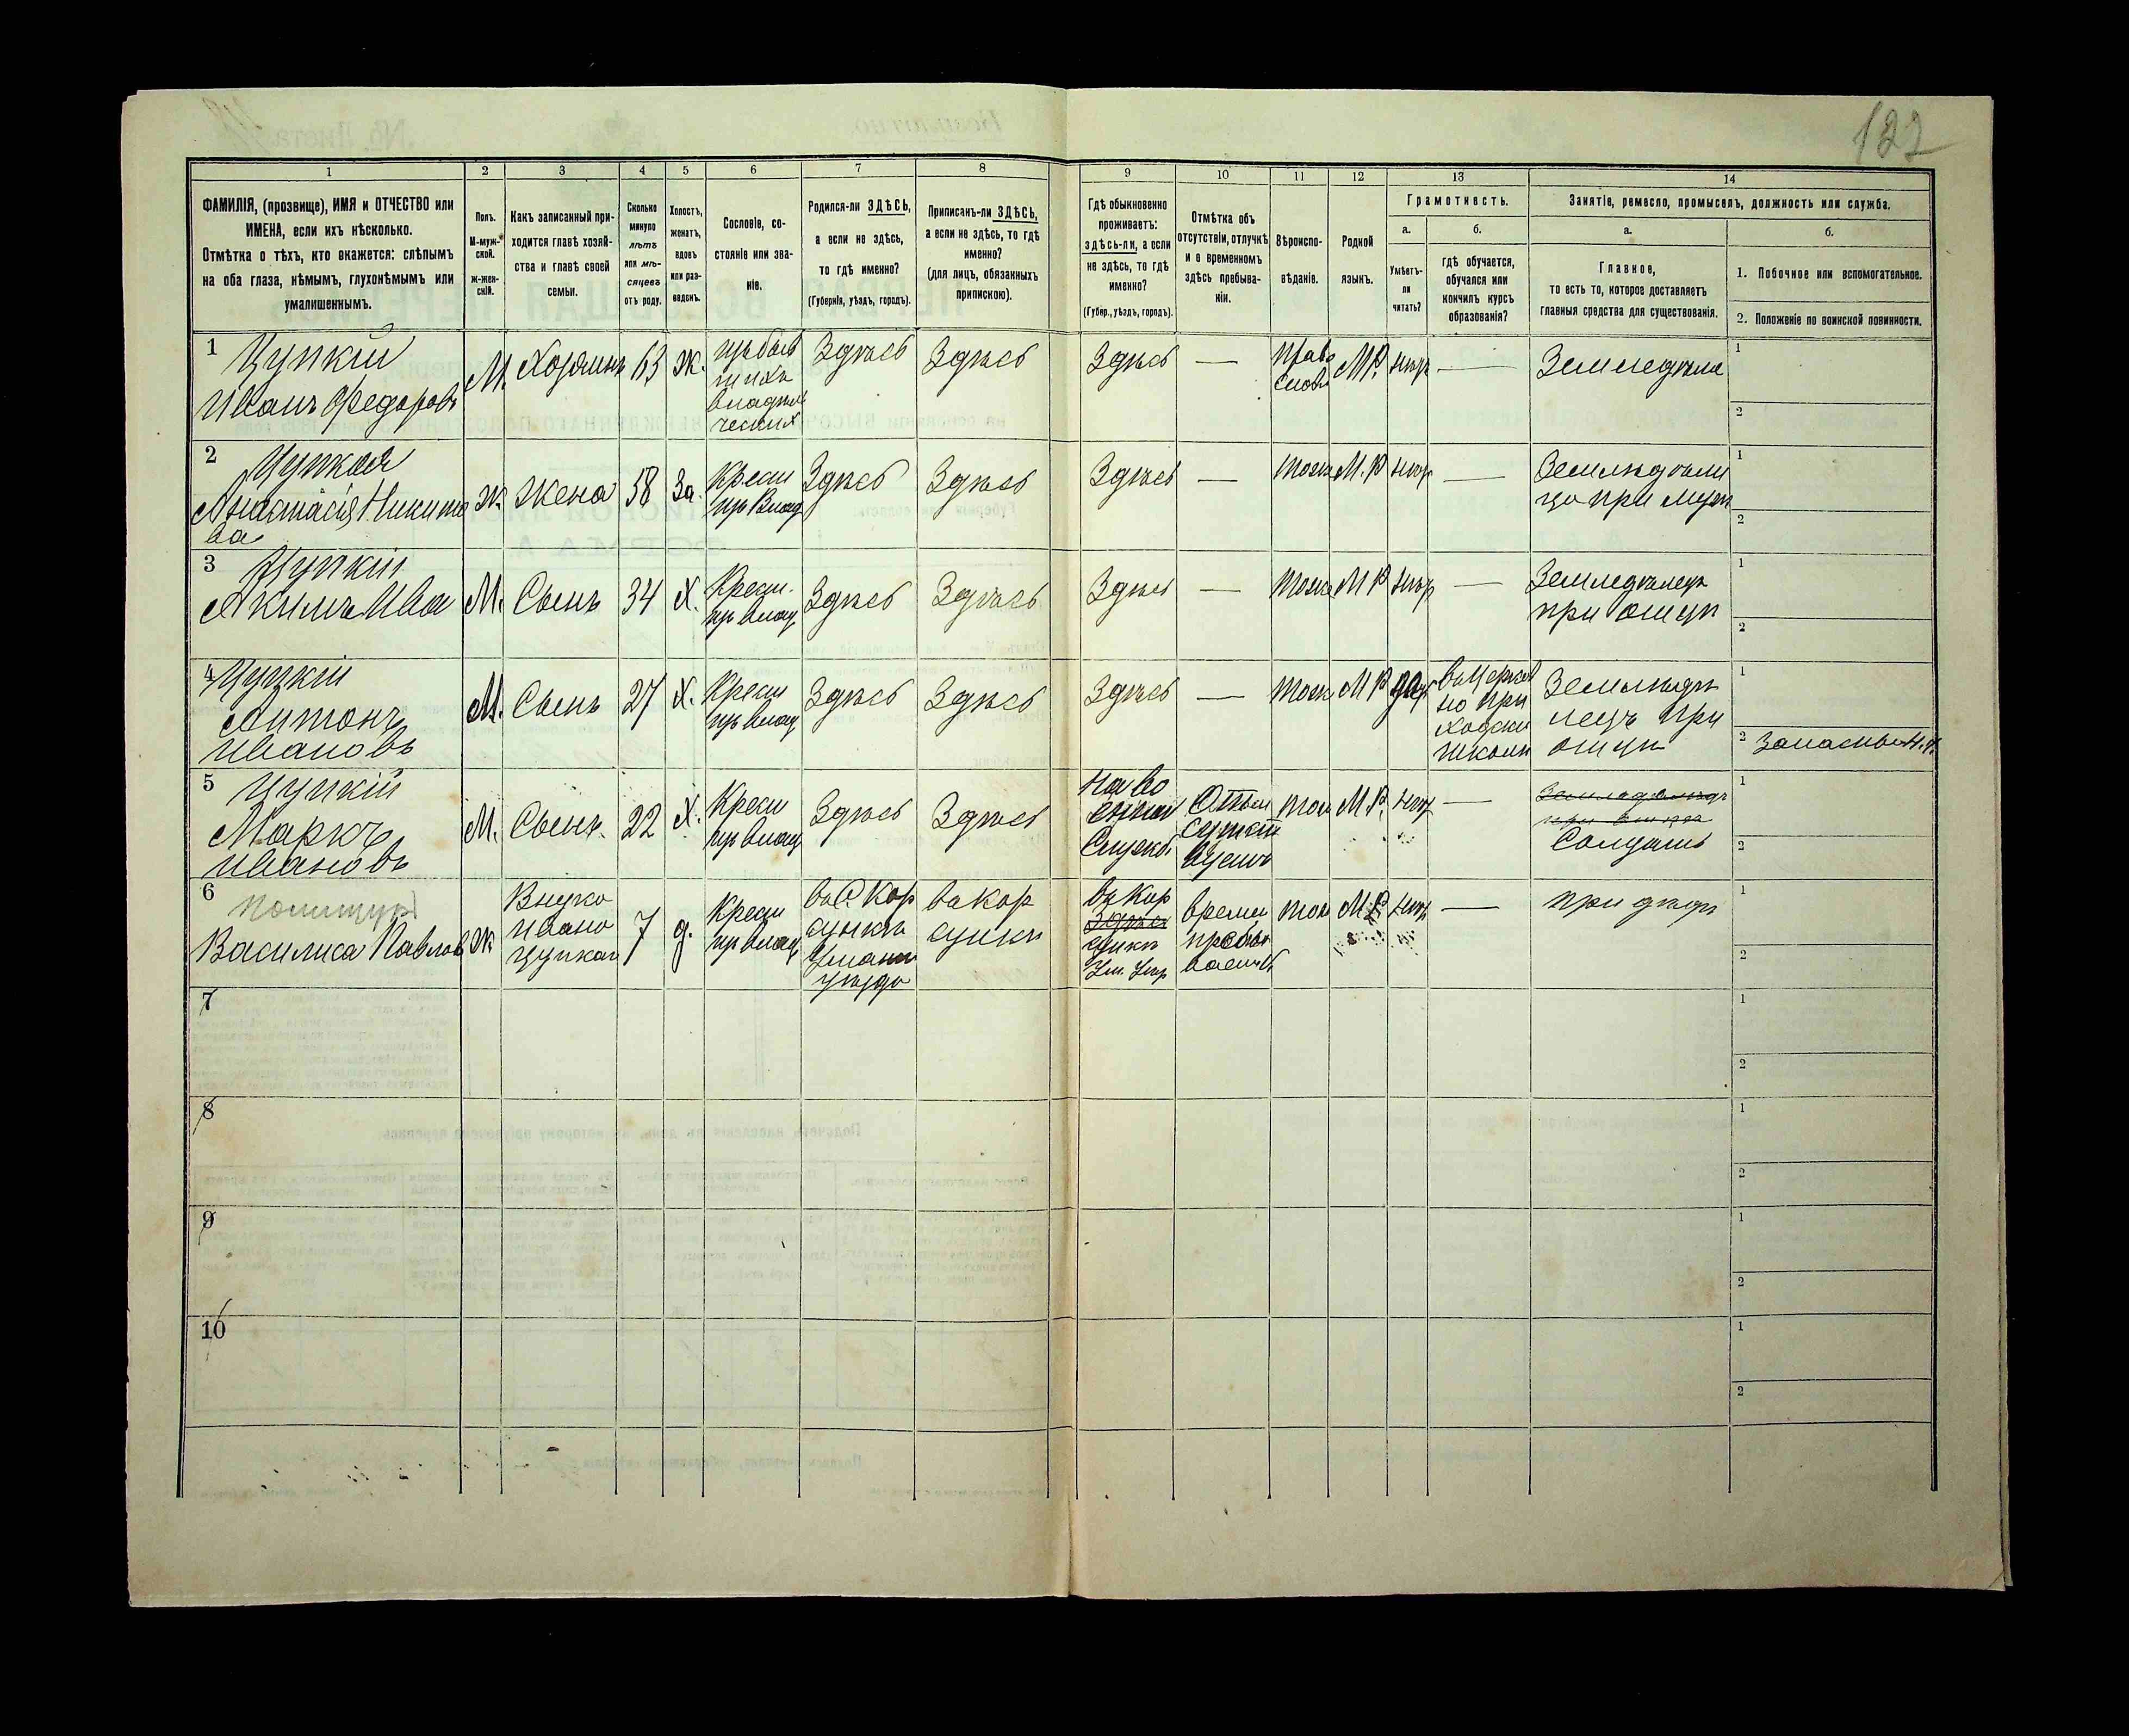 122
1 2 3 4 5 6 7 8 9 10 11 12 13 14
ФАМИЛІЯ, (прозвище), ИМЯ и ОТЧЕСТВО или
ИМЕНА, если ихъ нѣсколько.
Отмѣтка о тѣхъ, кто окажется: слѣпымъ
на оба глаза, нѣмымъ, глухонѣмымъ или
умалишеннымъ.
Полъ.
М-муж-
ской.
ж-жен-
скій.
Какъ записанный при-
ходится главѣ хозяй-
ства и главѣ своей
семьи.
Сколько
минуло
лѣтъ
или мѣ-
сяцевъ
отъ роду.
Холостъ,
женатъ,
вдовъ
или раз-
веденъ.
Сословіе, со-
стояніе или зва-
ніе.
Родился-ли ЗДѢСЬ,
а если не здѣсь,
то гдѣ именно?
(Губернія, уѣздъ, городъ).
Приписанъ-ли ЗДѢСЬ,
а если не здѣсь, то гдѣ
именно?
(для лицъ, обязанныхъ
припискою).
Гдѣ обыкновенно
проживаетъ:
здѣсь-ли, а если
не здѣсь, то гдѣ
именно?
(Губер., уѣздъ, городъ).
Отмѣтка объ
отсутствіи, отлучкѣ
и о временномъ
здѣсь пребыва-
ніи.
Вѣроиспо-
вѣданіе.
Родной
языкъ.
Грамотность.
а.
Умѣетъ-
ли
читать?
б.
гдѣ обучается,
обучался или
кончилъ курсъ
образованія?
Занятіе, ремесло, промыселъ, должность или служба.
а.
Главное,
то есть то, которое доставляетъ
главныя средства для существованія.
б.
1. Побочное или вспомогательное.
2. Положеніе по воинской повинности.
1 Цупкій
Иванъ Федоровъ
М. Хозяинъ 63 Ж.
Здѣсь Здѣсь Здѣсь —
Право
слов
М Р. нѣтъ — Земледѣле
1
2
2 Цупкая
Анастасія Никито
ва
Ж. жена 58 За.
Крест
изъ Влад
Здѣсь Здѣсь Здѣсь — тоже М. Р нѣтъ —
при муж
1
2
3 Цупкій
Якимъ Ива
М. Сынъ 34 Х.
Крест.
изъ влад
Здѣсь Здѣсь Здѣсь — тоже М Р нѣтъ —
Земледѣлецъ
при отцѣ
1
2
4 Цупкій
Антонъ
Ивановъ
М. Сынъ 27 Х.
Крест
изъ влад
Здѣсь Здѣсь Здѣсь — тоже М Р да
въ Церков
но при
ходской
школѣ
лецъ при
отцѣ
1
2
5 Цупкій
Маркъ
Ивановъ
М. Сынъ. 22 Х.
Крест
изъ влад
Здѣсь Здѣсь
На во
енной
Служб.
тож М. Р. нѣт —
Солдатъ
1
2
6
Василиса Павлов
Ж
Внука
Ивана
Цупкаг
7 д.
Крест
изъ влад
въ С. Кор
сунки
Уманск
уѣзда
въ Кор
сунки
въ Кор
Здѣсь
сунки
Ум. Уѣз
време
пребы
ваетъ
тож М Р нѣтъ — при дѣдѣ
1
2
7
1
2
8
1
2
9
1
2
10
1
2